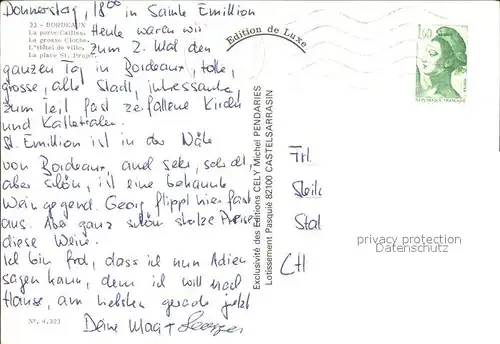 Donnerstag, 18.00 in Sainte Emillion
33 - BORDEAUX
La porte Cailhau.
La grosse Cloche.
L'Hôtel de ville.
La place St. Projet.
Heute waren wir
zum 2. Mal den
ganzen Tag in Bordeaux, tolle,
grosse, alte Stadt, interessante,
zum Teil fast zerfallene Kirchen
und Kathetralen.
St. Emillion ist in der Nähe
von Bordeaux, auch sehr, sehr alt,
aber schön, ist eine bekannte
Weingegend. Georg flippt hier fast
aus. Aber ganz schön stolze Preise
diese Weine.
Ich bin froh, dass ich nun Adieu
sagen kann, denn ich will nach
Hause, am liebsten gerade jetzt
Deine Maa +
Nº. 4.323
Edition de Luxe
Exclusivité des Editions CELY Michel PENDARIES
Lotissement Pasquié 82100 CASTELSARRASIN
1,60
REPUBLIQUE FRANÇAISE
Frl
CH
privacy protection
Datenschutz